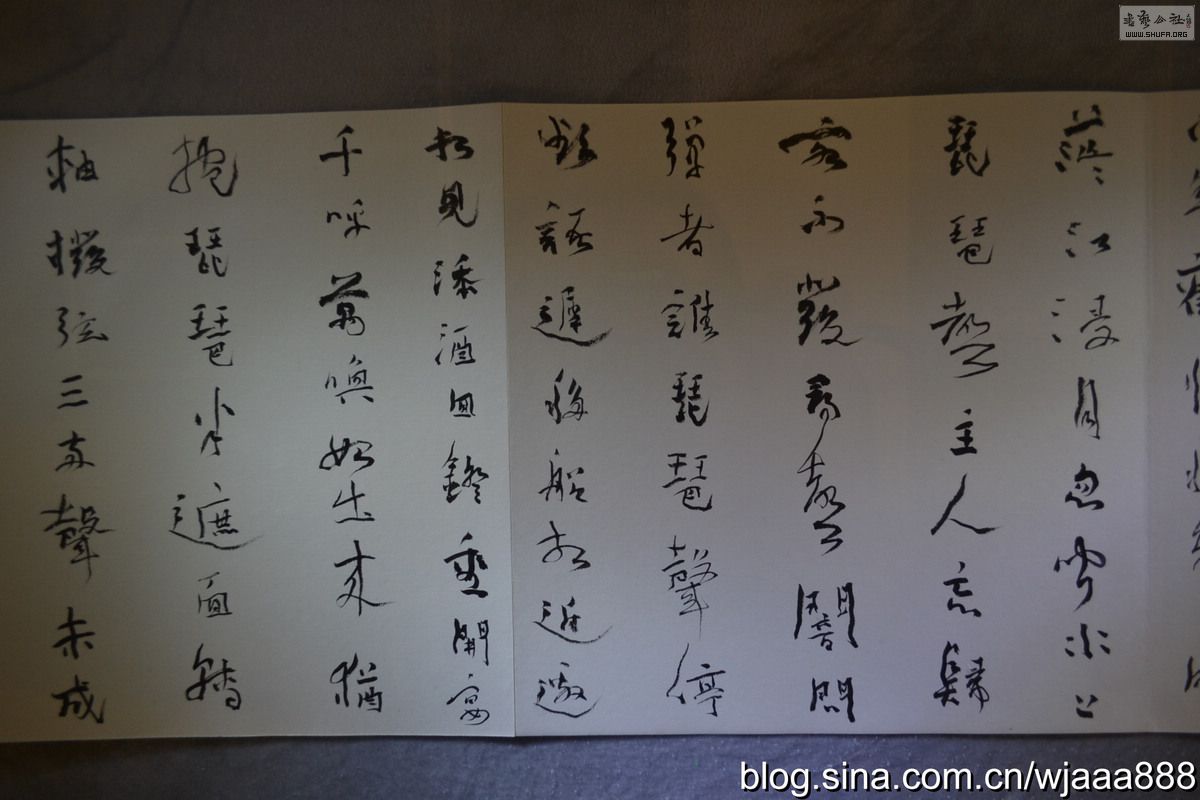 茫江浸月忽聞水上
琵琶聲主人忘歸
客不發尋聲闇問
彈者誰琵琶聲停
欲語遲移船相近邀
相見添酒回鐙重開宴
千呼萬喚始出來猶
抱琵琶半遮面轉
軸撥弦三兩聲未成
書藝公社
WWW.SHUFA.ORG
blog.sina.com.cn/wjaaa888